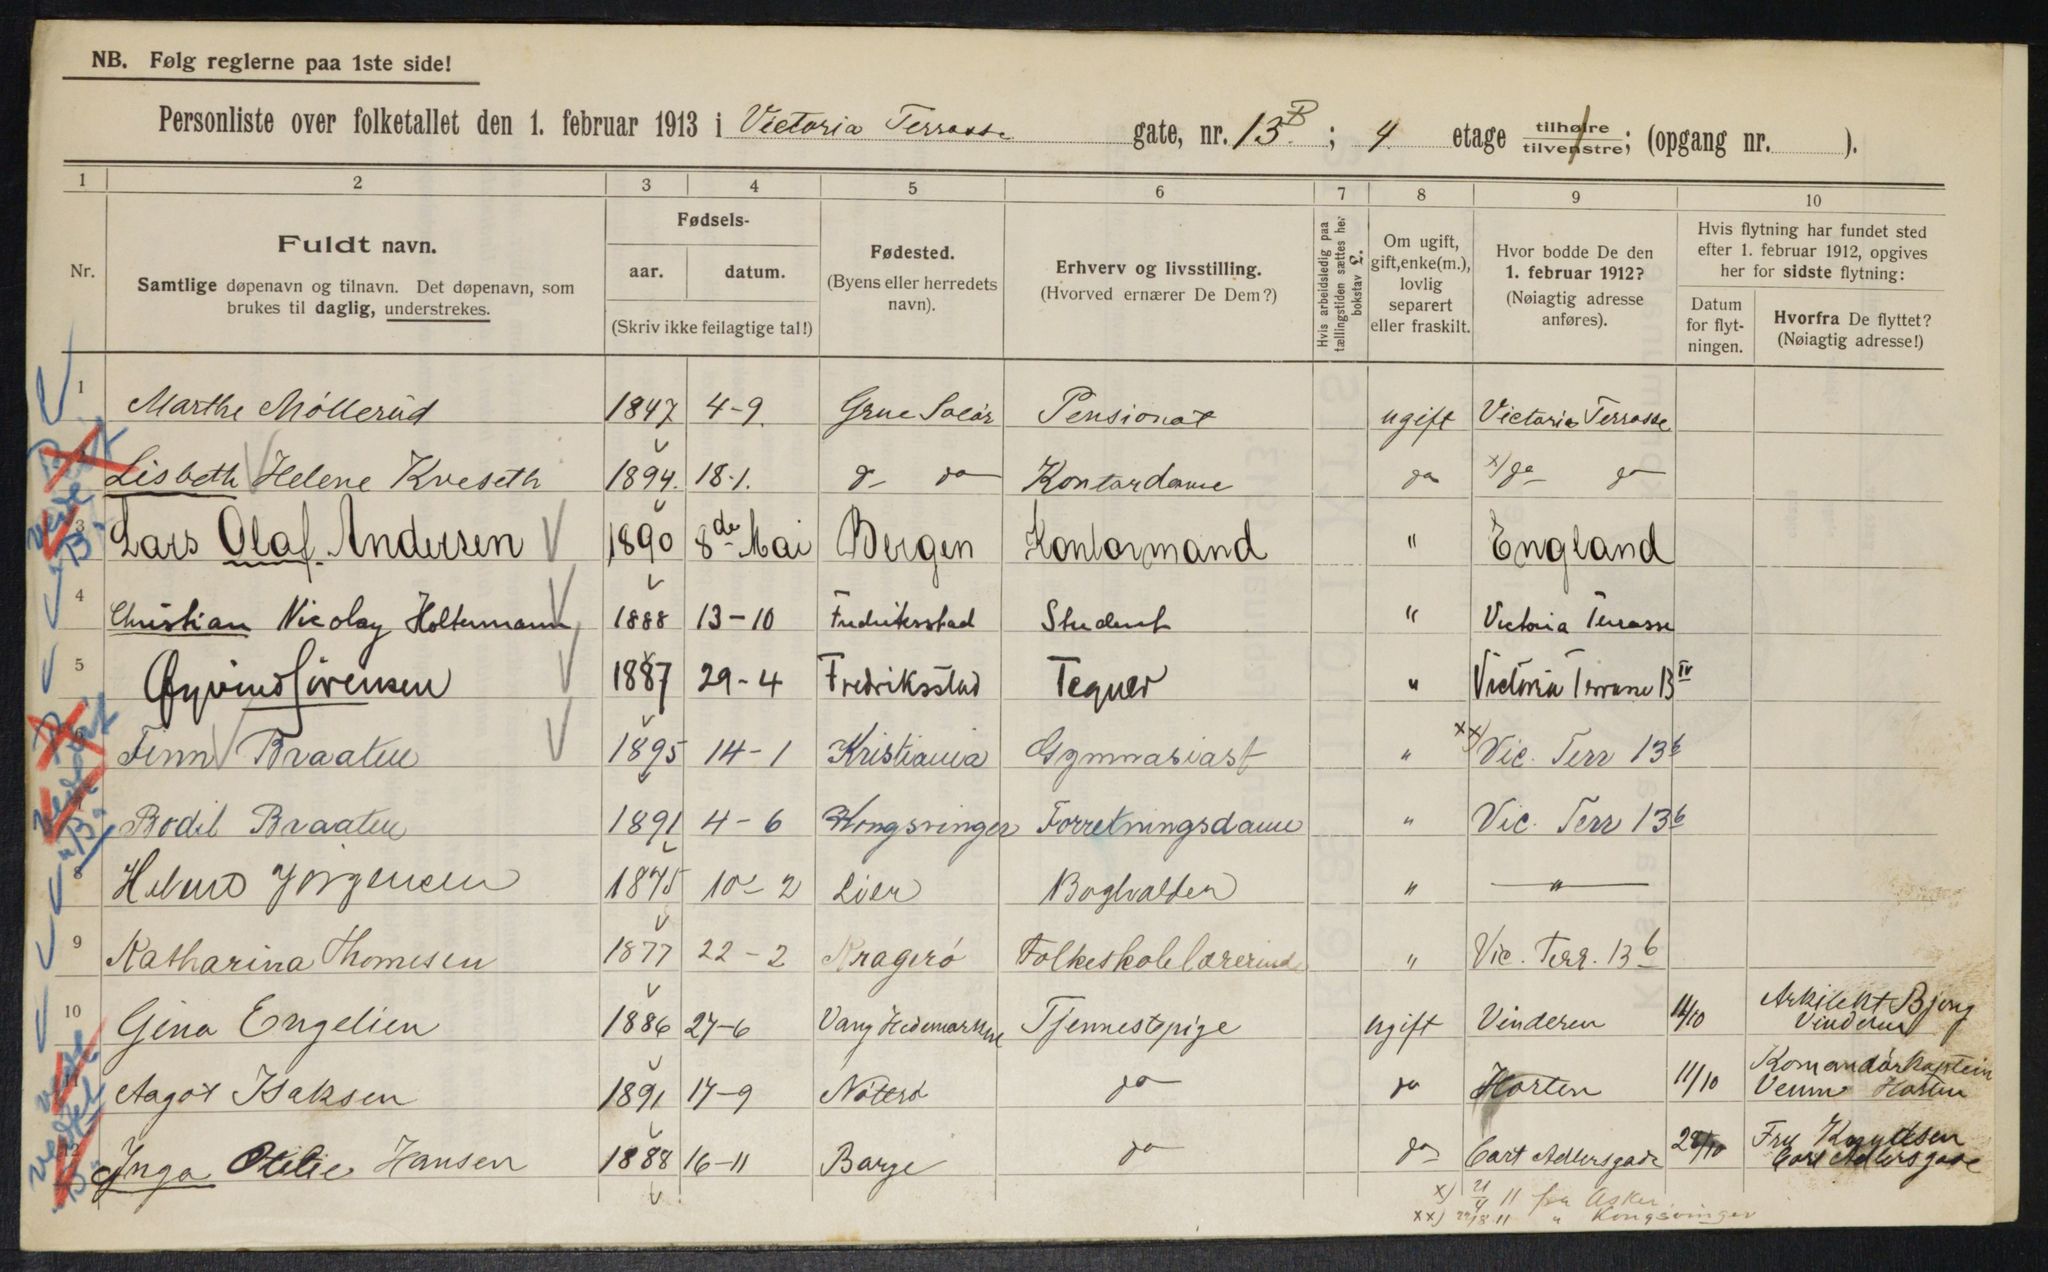 NB. Følg reglerne paa 1ste side!
Personliste over folketallet den 1. februar 1913 i Victoria Terrasse gate, nr. 13 B.; 4 etage tilhøire tilvenstre; (opgang nr. ).
1 2 3 4 5 6 7 8 9 10
Nr.
Fuldt navn.
Samtlige døpenavn og tilnavn. Det døpenavn, som
brukes til daglig, understrekes.
Fødsels-
aar. datum.
(Skriv ikke feilagtige tal!)
Fødested.
(Byens eller herredets
navn).
Erhverv og livsstilling.
(Hvorved ernærer De Dem?)
Hvis arbeidsledig paa
tællingstiden sættes her
bokstav L.
Om ugift,
gift, enke(m.),
lovlig
separert
eller fraskilt.
Hvor bodde De den
1. februar 1912?
(Nøiagtig adresse
anføres).
Hvis flytning har fundet sted
efter 1. februar 1912, opgives
her for sidste flytning:
Datum
for flyt-
ningen.
Hvorfra De flyttet?
(Nøiagtig adresse!)
1 Marthe Møllerud 1847 4-9. Grue Solør Pensionat ugift Victoria Terrasse
2 Lisbeth Helene Kveseth 1894. 18-1. do do Kontordame do x) do do
3 Lars Olaf Andersen 1890 8de Mai Bergen Kontormand " England
4 Christian Nicolay Holtermann 1888 13-10 Fredriksstad Student " Victoria Terrasse
5 Øyvind Sørensen 1887 29-4 Fredriksstad Tegner " Victoria Terrasse 13 IV
6 Finn Braaten 1895 14-1 Kristiania Gymnasiast " xx) Vic. Terr 13b
7 Bodil Braaten 1891 4-6 Kongsvinger Forretningsdame " Vic. Terr 13b
8 Jørgensen 1875 10-2 Lier " "
9 Katharina Thomesen 1877 22-2 Kragerø Folkeskolelærerinde " Vic. Terr. 13b
10 Gina Engelien 1886 27-6 Vang Hedemarken Tjennestepige ugift Vinderen 11/10 Arkitekt Bjong Vinderen
11 Aagot Isaksen 1891 17-9 Nøterø do do Horten 11/10 Komandørkaptein Venn Horten
12 Inga Otilie Hansen 1888 16-11 Borge do do Cort Adlersgade 28/10 Fru Knudsen Cort Adlersgade
x) 21/4 11 fra Asker
xx) 18 11 " Kongsvinger